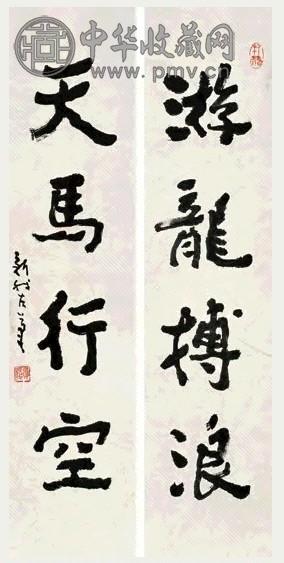 中华收藏网
www.pmv.cn
游龍搏浪
天馬行空